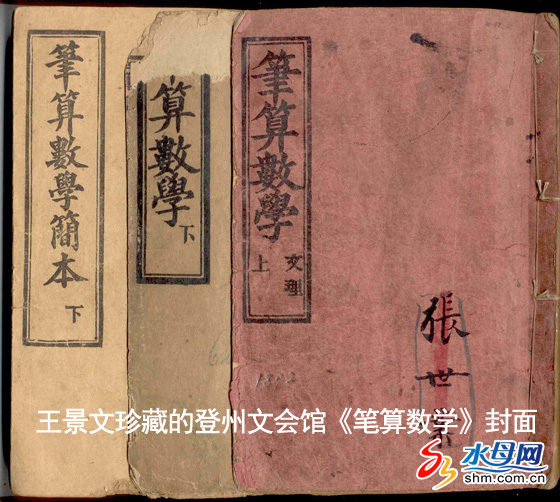 筆算數學簡本
下
算數學
下
筆算數學
文理
上
張世榮
王景文珍藏的登州文会馆《笔算数学》封面
水母网
shm.com.cn